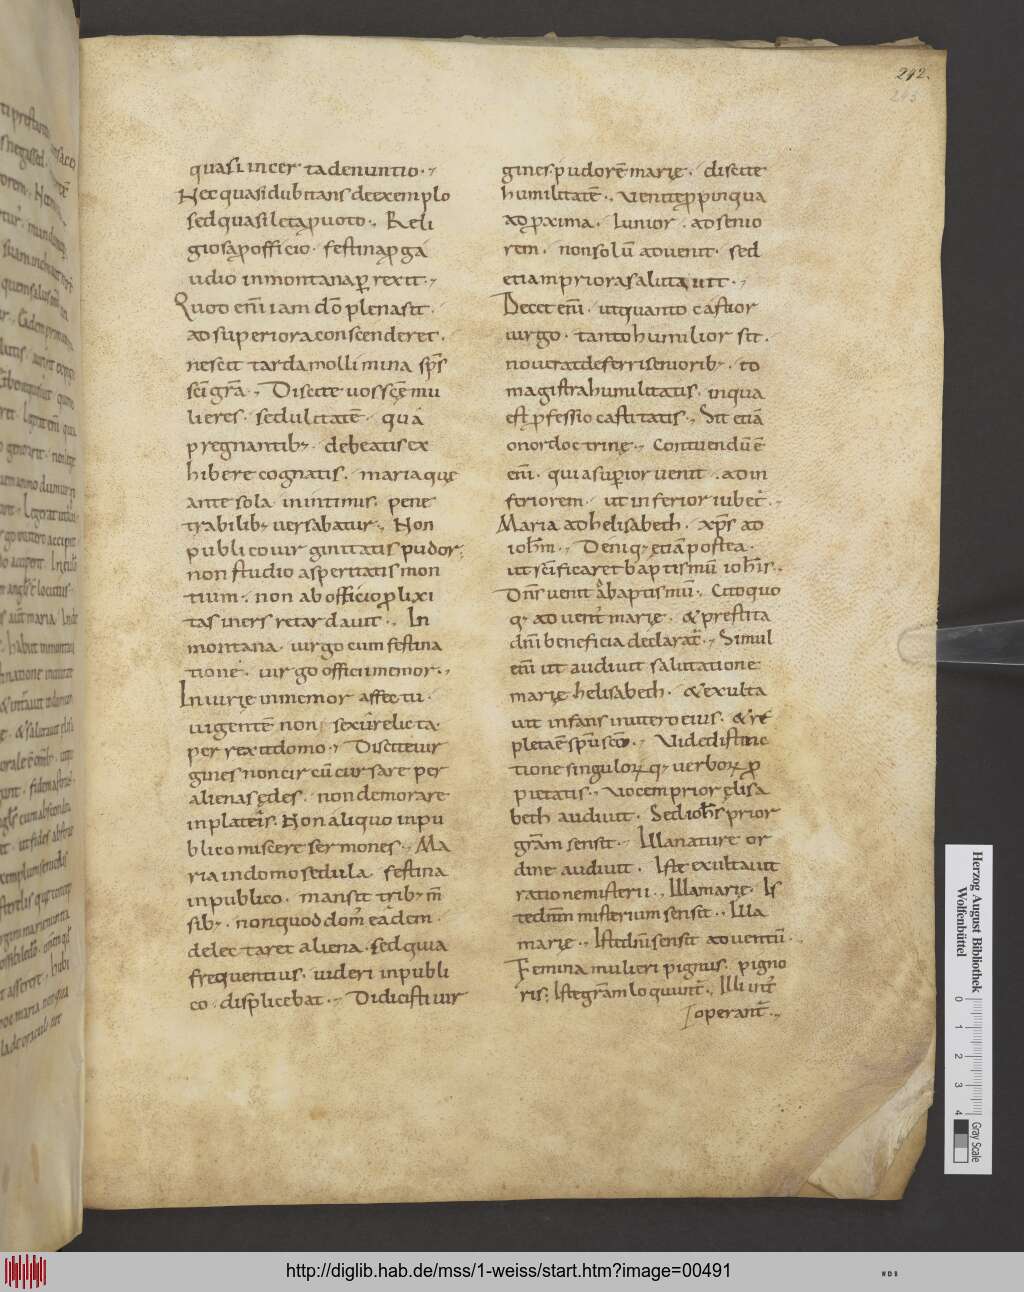 242.
243
quasi incer ta denuntio.,
Nec quasi dubitans deexemplo
sed quasi leta ꝓuoto., Reli
giosa ꝓofficio. festina ꝓ ga
udio inmontana ꝑ rexit.,
Quoo enī iam dō plenasit.
ad superiora conscenderet.
nescit tarda mollimina sp̄s
sc̄i gr̄a., Discite uos sc̄e mu
lieres. sedulitatē. quā
pregnantibꝫ. debeatis ex
hibere cognatis. maria quę
ante sola. in intimis. pene
trabilibꝫ uersabatur., Non
publico uir ginitatis pudor,
non studio asperitatis mon
tium., non ab officio ꝓlixi
tas iners retardauit., In
montana. uirgo cum festina
tione. uir go officii memor.,
Iniurię inmemor affectu.
uigentē non sexū relicta.
per rexit domo., Discite uir
gines non cir cū cur sare per
alienas ędes. non demorare
inplateis. Non aliquo inpu
blico miscere ser mones., Ma
ria indomo sedula. festina
inpublico. mansit tribꝫ m̄
sibꝫ. nonquod dom̄ eā dem.
delec taret aliena. sed quia
frequentius. uideri inpubli
co. displicebat., Didicisti uir
gines pudorē marię. discite
humilitatē., Uenit ꝓpinqua
ad ꝓxima. Iunior. ad senio
rem. non solū aduenit. sed
etiam priora salutauit.,
Decet enī. ut quanto castior
uirgo. tanto humilior sit.
nouerat deferri seniorib;. to
magistra humilitatis. in qua
est ꝓfessio castitatis., Sit etiā
onor doctrinę., Contuendū ē
enī. quia superior uenit. ad in
feriorem. ut inferior iubet̄.,
Maria ad helisabeth. xp̄s ad
ioh̄m., Deniqꝫ etiā postea.
ut sc̄ificaret baptismū ioh̄is.,
Dn̄s uenit ad baptismū. Cito quo
qꝫ aduent̄ marię. & prestita
dn̄i beneficia declarat̄., Simul
enī ut audiuit salutatione
marię helisabeth. & exulta
uit infans inutero eius. & re
pleta ē sp̄u sc̄o., Uide distinc
tione singulorꝝ qꝫ uerborꝝ ꝓ
pietatis., Uocem prior ęlisa
beth audiuit. Sed ioh̄s prior
gr̄am sensit., Illa nature or
dine audiuit. Iste exultauit
ratione misterii., Illa marię. Is
te dn̄m misterium sensit., Illa
marię., Iste dn̄i sensit aduentū.
Femina mulieri pignus. pigno
ris; Iste gr̄am loquunt̄., Illi int̄
operant̄.,
http://diglib.hab.de/mss/1-weiss/start.htm?image=00491
Herzog August Bibliothek
Wolfenbüttel
0 1 2 3 4
Gray Scale